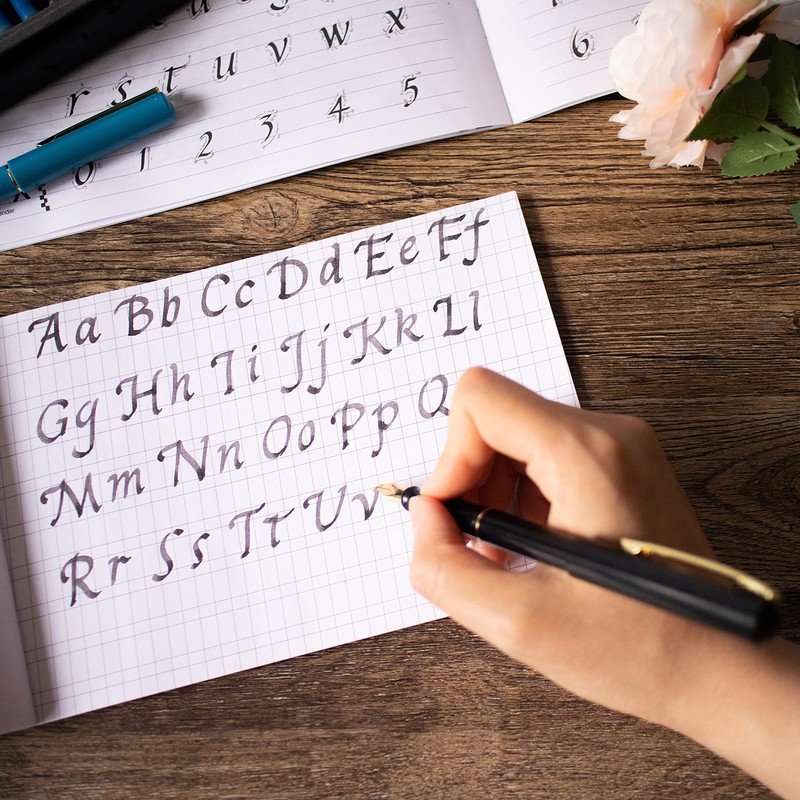 r s t u v w x
0 1 2 3 4 5
6
Aa Bb Cc Dd Ee Ff
Gg Hh Ii Jj Kk Ll
Mm Nn Oo Pp Q
Rr Ss Tt Uv